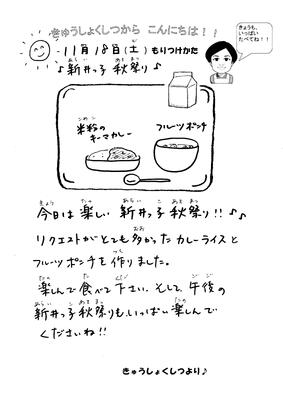 きゅうしょくしつから こんにちは！！
きょうも、
いっぱい
たべてね！！
11月18日(土) もりつけかた
♪新井っ子 秋祭り♪
米粉の
キーマカレー
フルーツポンチ
今日は楽しい 新井っ子 秋祭り!! ♪♪
リクエストがとても多かったカレーライスと
フルーツポンチを作りました。
楽しんで食べて下さい。そして、午後の
新井っ子秋祭りも、いっぱい楽しんで
くださいね!!
きゅうしょくしつより♪